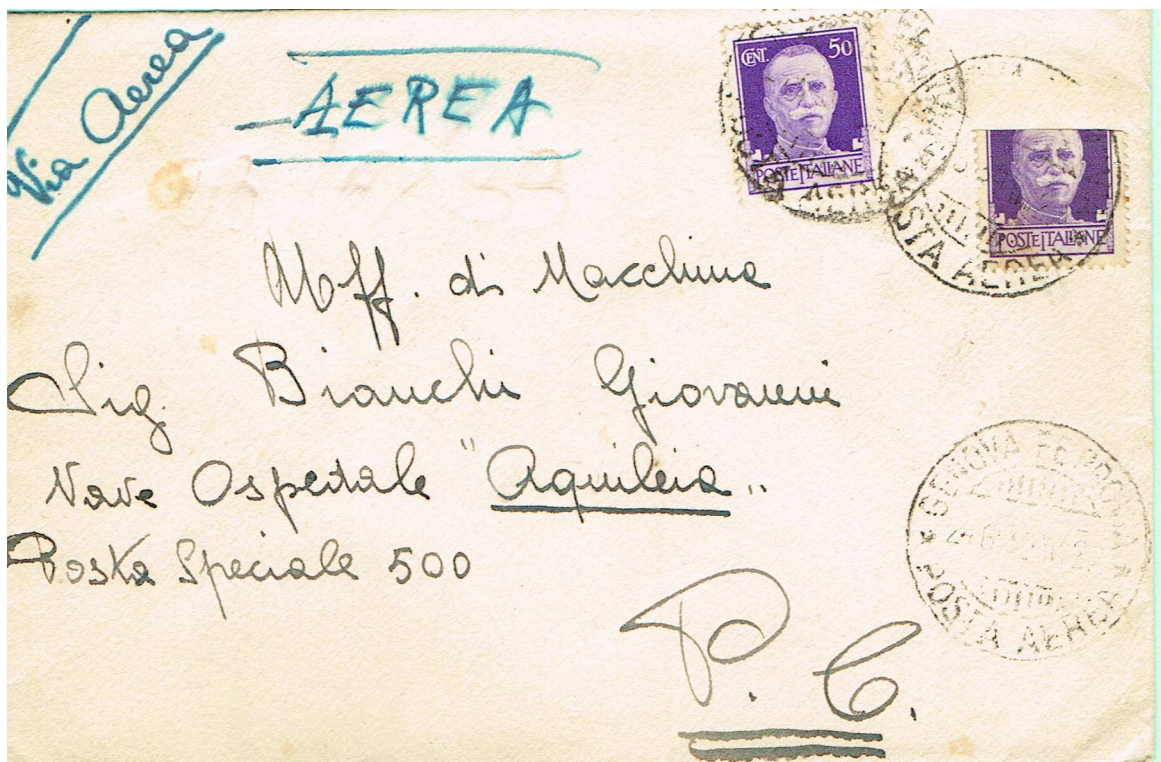 Via Aerea
AEREA
CENT. 50
POSTE ITALIANE
POSTE ITALIANE
POSTA AEREA
Uff. di Macchina
Sig. Bianchi Giovanni
Nave Ospedale "Aquileia"
Posta Speciale 500
P. C.
GENOVA FERROVIA
POSTA AEREA